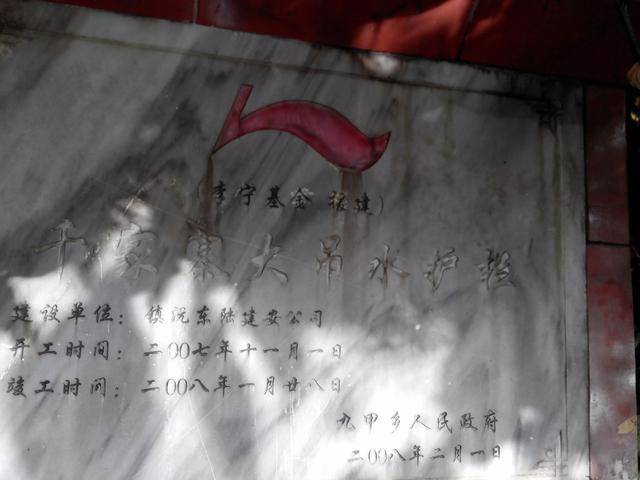 （李宁基金 援建）
千家寨大吊水护栏
建设单位：镇沅东陆建安公司
开工时间：二00七年十一月一日
竣工时间：二00八年一月廿八日
九甲乡人民政府
二00八年二月一日